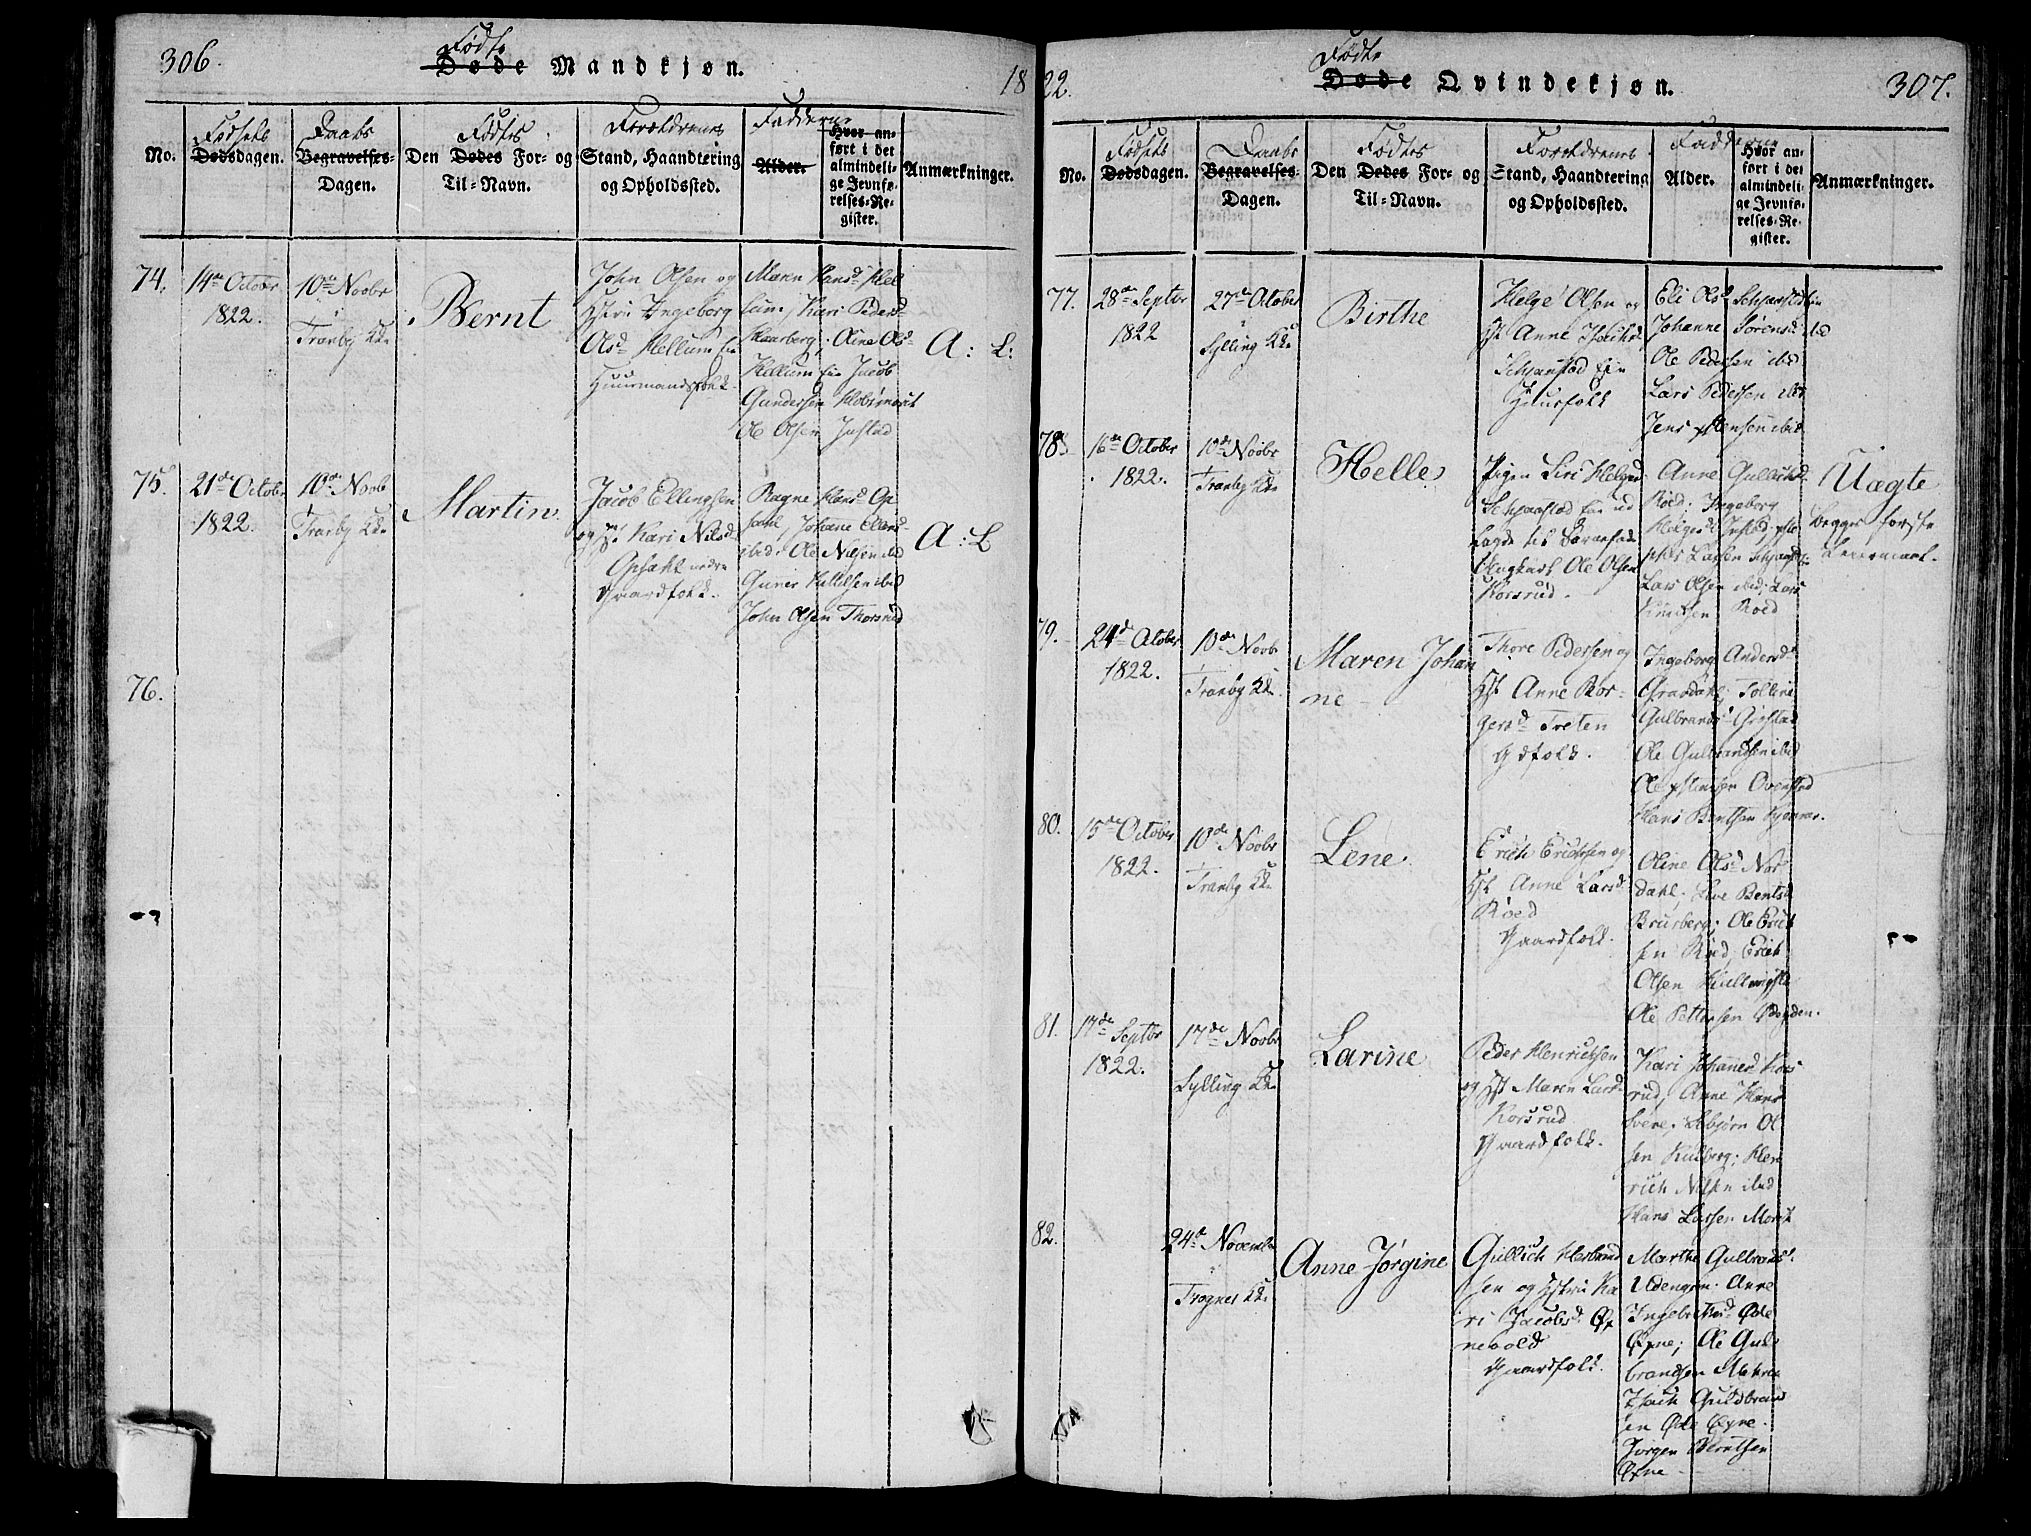 306.
Fødte
Døde Mandkjøn.
18
No.
Fødsels
Dødsdagen.
Daabs
Begravelses-
Dagen.
Fødtes
Den Dødes For- og
Til-Navn.
Forældrenes
Stand, Haandtering
og Opholdssted.
Faddern
Alder.
Hvor an-
ført i det
almindeli-
ge Jevnfø-
relses-Re-
gister.
Anmærkninger.
74.
14de Octobr
1822.
10de Novbr
Tranby Kk
Bernt
John Olsen og
Hstru Ingeborg
Olsd Hellum
Huusmandsfolk.
Maren Hansd Hel
lum, Kari Peders-
Haarberg, Oline Ols-
Hellum Jacob
Gundersen
Ole Olsen Justad
A: L:
75.
21de Octobr
1822.
10de Novb
Tranby Kk
Martin.
Jacob Ellingsen
og H Kari Nilsd
Opsahl nedre
Gaardfolk.
Ragne Hansd Op-
sahl, Johane
ibid Ole Nilsen ibid
Guner Kittilsen ibid
John Olsen Thorsrud
A: L
76.
22.
Fødte
Døde Qvindekjøn.
307.
No.
Fødsels
Dødsdagen.
Daabs
Begravelses-
Dagen.
Fødtes
Den Dødes For- og
Til-Navn.
Forældrenes
Stand, Haandtering
og Opholdssted.
Fadderne
Alder.
Hvor an-
ført i det
almindeli-
ge Jevnfø-
relses-Re-
gister.
Anmærkninger.
77.
28de Septbr
1822
27de October
Sylling Kk
Birthe
Helge Olsen og
Hst Anne Isachsd
Schjærstad
Huusfolk
Eli Olsd Schjærstad
Johanne Sørensd ibid
Ole Pedersen ibid
Lars Pedersen ibid
Jens Hensen ibid
78.
16de October
1822.
10de Novbr
Tranby Kk
Helle
Pigen Siri Helgesd
Schjærstad
lagde til Barnefader
Ungkarl Ole Olsen
Korsrud.
Anne
Røed; Ingeborg
Helgesd
Larsen
Lars Olsen ibid; Lars
Knudsen Røed
Uægte
begges første
Leiermaal.
79.
24de October
1822.
10de Novb
Tranby Kk
Maren Johan
ne
Thore Pedersen og
Hst Anne Bor-
gersd Treten
Gdfolk.
Ingeborg Andersd
Grasdahl; Tolline
Gulbrandsd
Ole Gulbrandsen ibid
Ole Ovenstad
Hans Bentsen
80.
15de October
1822.
10de Novbr
Tranby Kk
Lene
Erich Erichsen og
Hst Anne Larsd
Røed
Gaardfolk.
Oline Olsd Nor
dahl; Live Bentsd
Brurberg; Ole Erich
sen Røed, Erich
Olsen
Ole Pettersen
81.
17de Septbr
1822.
17de Novbr
Sylling Kk
Larine
Peder Henrichsen
og Hst Maren Larsd
Korsrud
Gaardfolk.
Kari Johannesd Kors
rud, Anne Hansd
Ol
sen Kulberg; Hen
rich Nilsen ibid
Hans Larsen Morst
82.
24de Novembr
Tragnes Kk
Anne Jørgine
Gullich Herbrand
sen og Hstru Ka
ri Jacobsd Øx
nevold
Gaardfolk.
Marthe Gulbrandsd
Udengen. Anne
Ingebretsd Øde
Øxne; Ole Gul
brandsen
Isach Guldbrand
sen Øde Øxne.
Jørgen Berntsen
Øxne